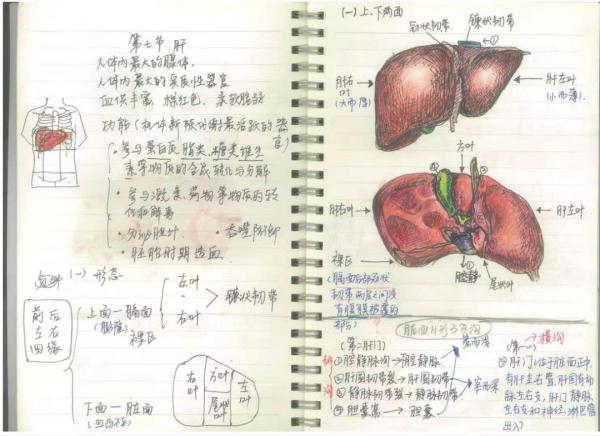 第七节 肝
人体内最大的腺体.
人体内最大的实质性器官
血供丰富, 棕红色, 柔软脆弱
功能(机体新陈代谢最活跃的器官)
·参与蛋白质、脂类、糖类、维生
素等物质的合成、转化与分解
·参与激素、药物等物质的转
化和解毒
·分泌胆汁
·吞噬防御
·胚胎时期造血
(一)形态
前后
左右
四缘
上面—膈面
(膨隆)
左叶
右叶
镰状韧带
裸区
下面—脏面
(凹凸不平)
右叶
方叶
尾状叶
左叶
(一)上、下两面
冠状韧带
镰状韧带
①
肝右叶
(大而厚)
肝左叶
(小而薄)
方叶
肝右叶
肝左叶
腔静
尾状叶
裸区
(膈面后部冠状
韧带两层之间没
有腹膜被覆的
部分)
脏面H形三条沟
(第二肝门)
①腔静脉沟→腔静脉
②肝圆韧带裂→肝圆韧带
③静脉韧带裂→静脉韧带
④胆囊窝→胆囊
(第一)→横沟
⑤肝门:位于脏面正中,
有肝左右管,肝固有动
脉左右支,肝门静脉
左右支和神经、淋巴管
出入